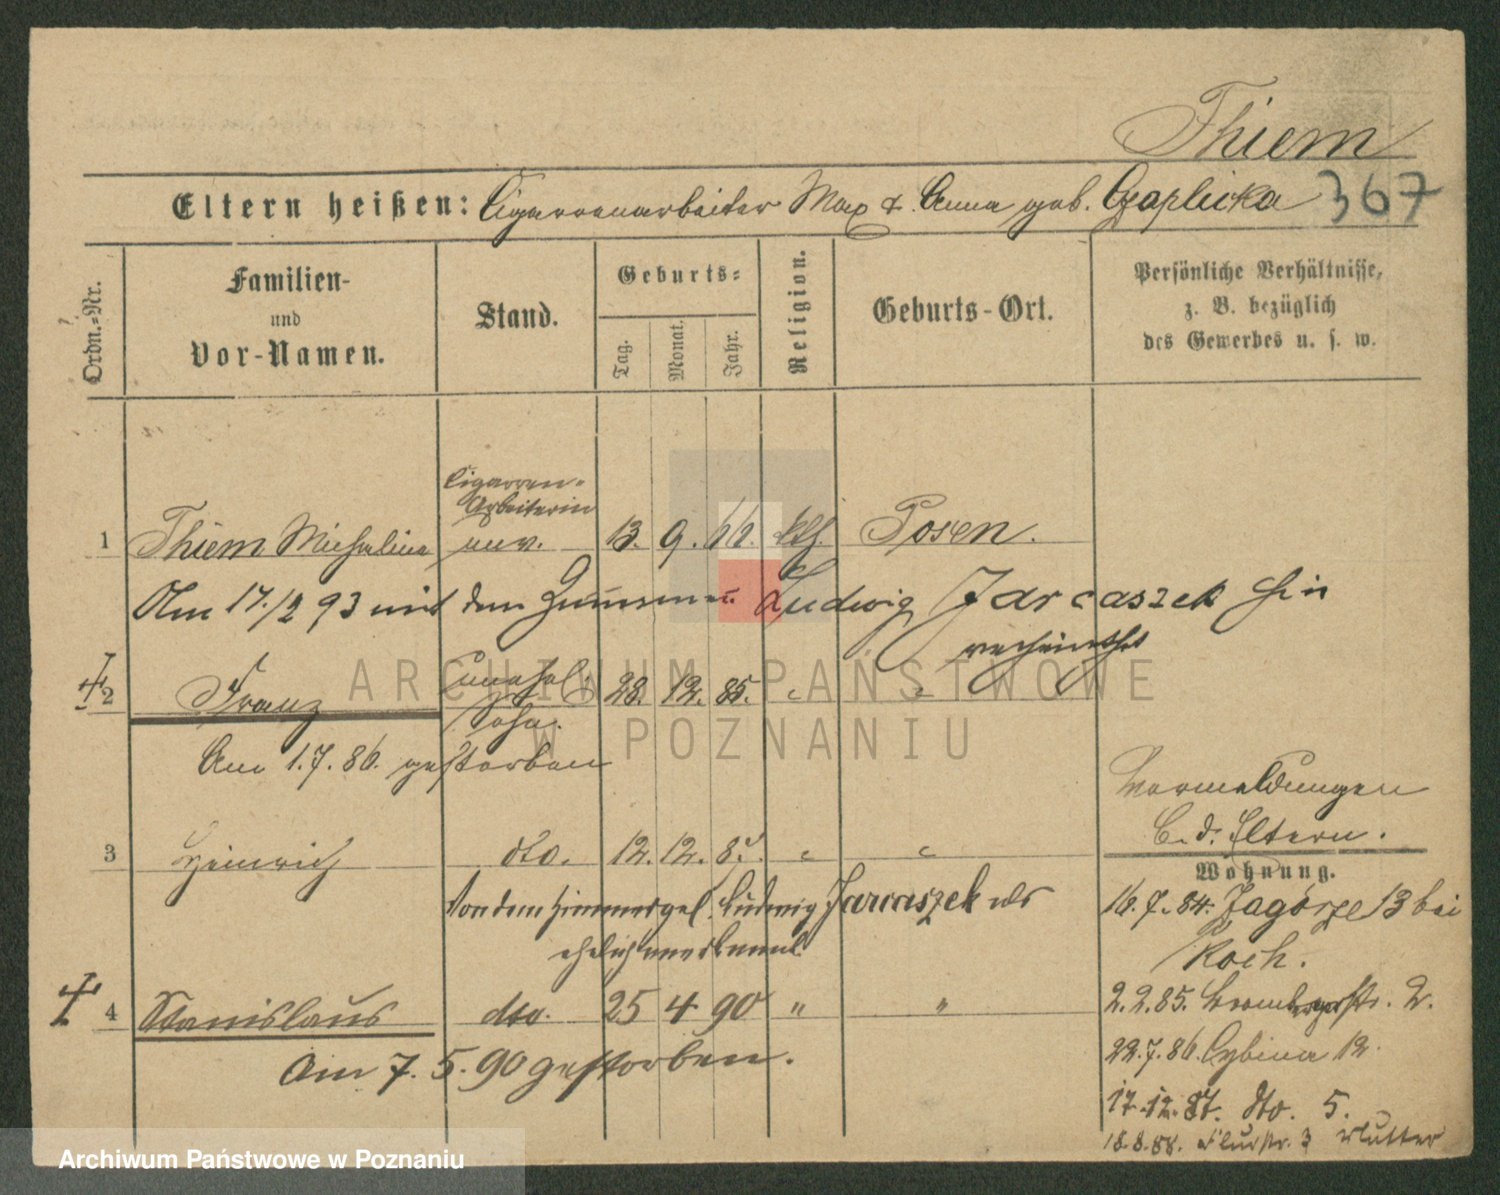 Thiem
Eltern heißen: Cigarrenarbeiter Max & Anna geb. Czaplicka 367
Ordn.-Nr.
Familien-
und
Vor-Namen.
Stand.
Geburts-
Tag.
Monat.
Jahr.
Religion.
Geburts-Ort.
Persönliche Verhältnisse,
z. B. bezüglich
des Gewerbes u. s. w.
Cigarren-
Arbeiterin
1 Thiem Michalina unv. 13. 9. 66. kth. Posen.
Am 17./2 93 mit dem Ludwig Jarcaszek hier
verheirathet
2 Franz unehel: 28. 12. 85. " "
Sohn.
Am 1.7.86. gestorben
3 Heinrich dto. 12. 12. "  "
Von dem Zimmergel. Ludwig Jarcaszek als
ehelich anerkannt.
4 Stanislaus dto. 25 4 90 " "
Am 7. 5. 90 gestorben.
Vormeldungen
b. d. Eltern.
Wohnung.
16.7.84. Zagórze 13 bei
Koch.
2.2.85. Brombergerstr. 2.
22.7.86. Cybina 12.
17.12.87. dto. 5.
18.8.88. Flurstr. 3 Mutter
ARCHIWUM PAŃSTWOWE
W POZNANIU
Archiwum Państwowe w Poznaniu